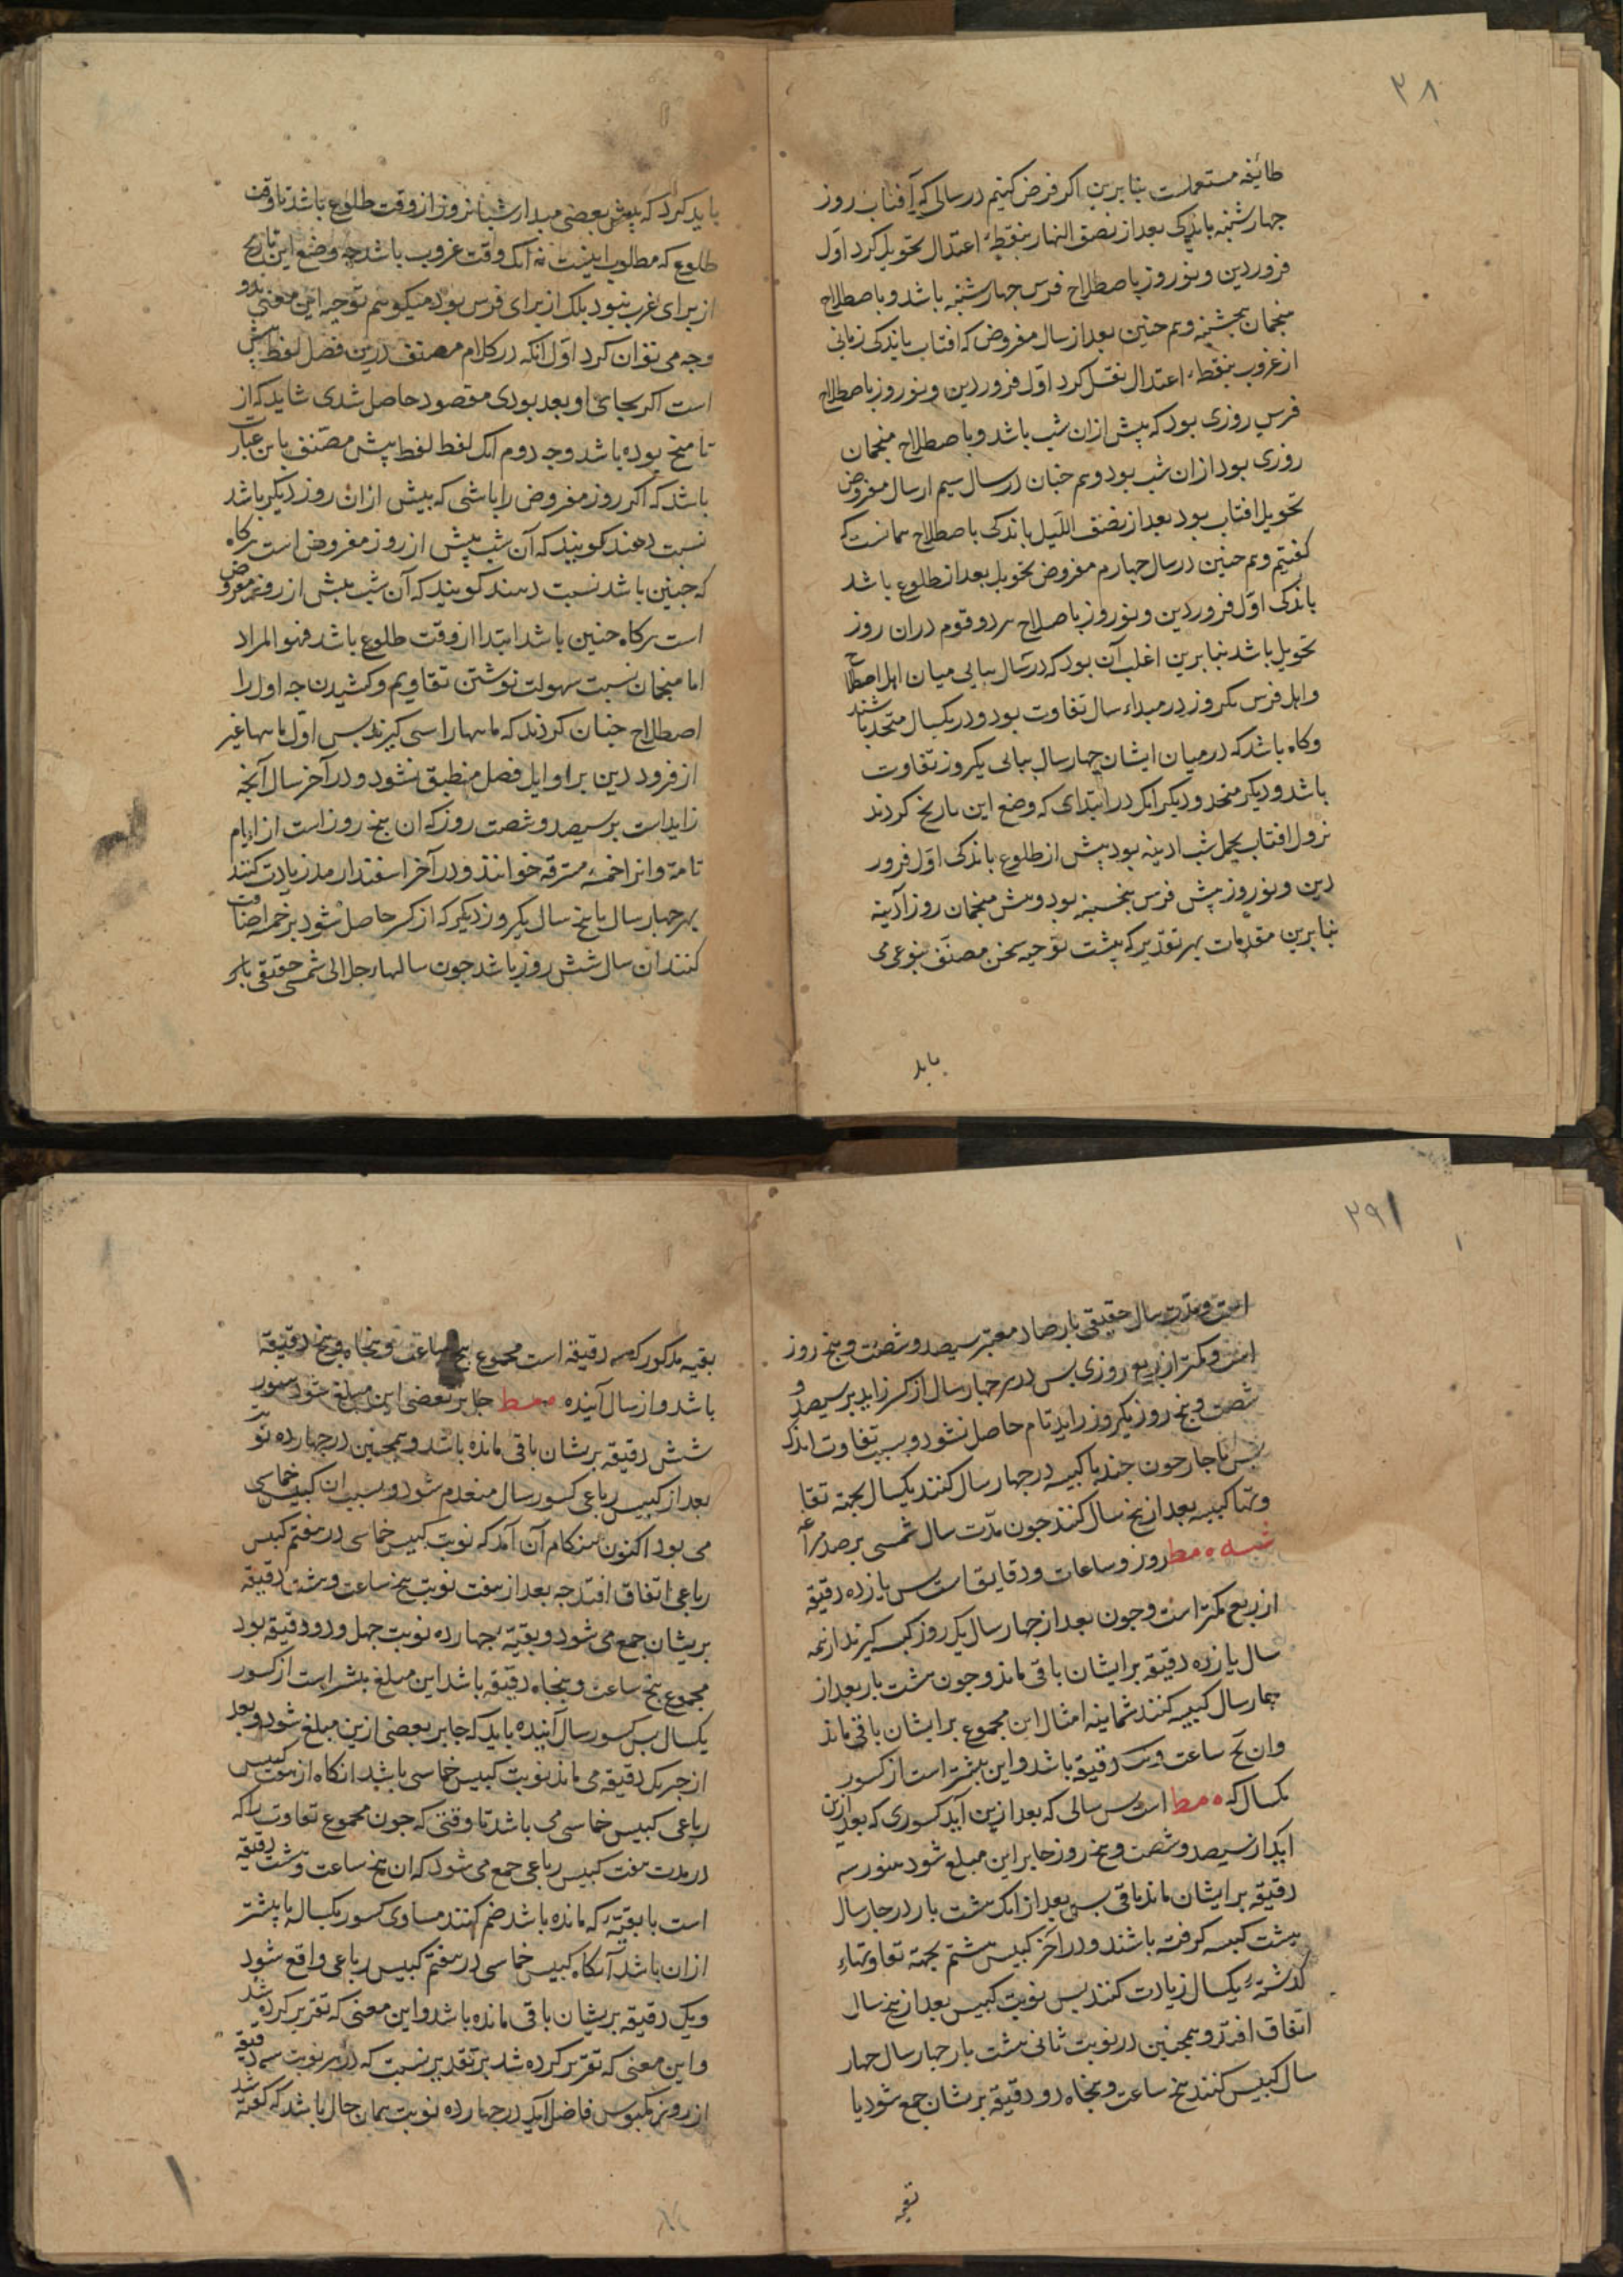 ۳۸
طائفه مستعملست بنا برین اکر فرض کنیم در سالی که آفتاب روز
چهارشنبه باندکی بعد از نصف النهار بنقطهٔ اعتدال تحویل کرد اول
فروردین و نوروز باصطلاح فرس چهارشنبه باشد و باصطلاح
منجمان پنجشنبه و هم چنین بعد از سال مفروض که افتاب باندکی زمانی
از غروب بنقطهٔ اعتدال نقل کرد اول فروردین و نوروز باصطلاح
فرس روزی بود که پیش ازان شب باشد و باصطلاح منجمان
روزی بود ازان شب بود و هم چنان در سال سیم از سال مفروض
تحویل افتاب بود بعد از نصف اللیل باندکی باصطلاح همانست که
کفتیم و هم چنین در سال چهارم مفروض تحویل بعد از طلوع باشد
باندکی اول فروردین و نوروز باصلاح هر دو قوم دران روز
تحویل باشد بنابرین اغلب آن بود که در سال بیالی میان اهل اصطلاح
و اهل فرس یکروز در مبداء سال تفاوت بود و در یکسال متحد باشند
و کاه باشد که در میان ایشان چهار سال بیالی یکروز تفاوت
باشد و دیکر متحد و دیکر انک در ابتدای که وضع این تاریخ کردند
نزول افتاب بحمل شب ادینه بود پیش از طلوع باندکی اول فرور
دین و نوروز پیش فرس پنجشنبه بود و پیش منجمان روز آدینه
بنابرین مقدمات بهر تقدیر که هست توجیه سخن مصنف بنوعی می
باید
باید کرد که پیش بعضی مبدا شبانروز از وقت طلوع باشد تا وقت
طلوع که مطلوب اینست نه آنک وقت غروب باشد چه وضع این تاریخ
از برای عرب نبود بلک از برای فرس بود میکوییم توجیه این معنی بدو
وجه می توان کرد اول انکه در کلام مصنف درین فصل لفظ پیش
است اکر بجای او بعد بودی مقصود حاصل شدی شاید که از
ناسخ بوده باشد وجه دوم انک لفظ لفظ پیش مصنف باین عبارت
باشد که اکر روز مفروض را باشی که بیش ازان روز دیکر باشد
نسبت دهند کویند که آن شب پیش از روز مفروض است هرکاه
که چنین باشد نسبت دهند کویند که آن شب پیش از روز مفروض
است هرکاه چنین باشد ابتدا از وقت طلوع باشد فهو المراد
اما منجمان نسبت سهولت نوشتن تقاویم و کشیدن جداول را
اصطلاح چنان کردند که ماهها را سی کیرند پس اول ماهها غیر
از فرودین بر اوایل فصل منطبق نشود و در آخر سال آنچه
زایداست بر سیصد و شصت روز که ان پنج روز است از ایام
تامه و انرا خمسهٔ مسترقه خوانند و در آخر اسفندارمذ زیادت کنند
بهر چهار سال یا پنج سال یکروز دیکر که از کسر حاصل شود بر خمسه اضافت
کنند ان سال شش روز باشد چون سالهاء جلالی شمسی حقیقی باز
۲۹
است و مدت سال حقیقی بارصاد معتبر سیصد و شصت و پنج روز
است و کمتر از ربع روزی پس در هر چهار سال از کسر زاید بر سیصد و
شصت و پنج روز یکروز زاید تام حاصل نشود و بسبب تفاوت اندک
پس ناچار چون چند بار کبیسه در چهار سال کنند یکسال بجهة تفا
وتها کبیسه بعد از پنج سال کنند چون مدت سال شمسی برصد مراغه
شسه ه مط روز و ساعات و دقایق است پس یازده دقیقه
از ربع کمتر است و چون بعد از چهار سال یک روز کبیسه کیرند از تتمه
سال یازده دقیقه بر ایشان باقی ماند و چون هشت بار بعد از
چهار سال کبیسه کنند ثمانیه امثال این مجموع بر ایشان باقی ماند
و ان ساعت و دقیقه باشد و این بیشتر است از کسور
یکسال که ه مط است پس سالی که بعد ازین آید کسوری که بعد ازین
آید از سیصد و شصت و پنج روز جابر این مبلغ شود هنوز سه
دقیقه بر ایشان ماند باقی پس بعد از انک هشت بار در چهار سال
هشت کبیسه کرفته باشند و در آخر کبیس هشتم بجهة تفاوتهاء
کذشته یکسال زیادت کنند پس نوبت کبیس بعد از پنج سال
اتفاق افتد و همچنین در نوبت ثانی هشت بار چهار سال چهار
سال کبیس کنند پنج ساعت و پنجاه دو دقیقه بریشان جمع شود با
بقیه
بقیه مذکور که سه دقیقه است مجموع پنج ساعت و پنجاه و پنج دقیقه
باشد و از سال آینده ه مط جابر بعضی این مبلغ شود هنوز
شش دقیقه بریشان باقی مانده باشد و همچنین در چهارده نوبت
بعد از کبیس رباعی کسور سال منعدم شود و بسبب ان کبیس خماسی
می بود اکنون هنکام آن آمد که نوبت کبیس خماسی در هفتم کبیس
رباعی اتفاق افتد چه بعد از هفت نوبت پنج ساعت و هشت دقیقه
بریشان جمع می شود و بقیهٔ چهارده نوبت چهل و دو دقیقه بود
مجموع پنج ساعت و پنجاه دقیقه باشد این مبلغ بیشتر است از کسور
یکسال پس کسور سال آینده باید که جابر بعضی ازین مبلغ شود و بعد
از جبر یک دقیقه می ماند نوبت کبیس خماسی باشد انکاه از هفت کبیس
رباعی کبیس خماسی می باشد تا وقتی که چون مجموع تفاوت را که
در مدت هفت کبیس رباعی جمع می شود که ان پنج ساعت و هشت دقیقه
است با بقیهٔ که مانده باشد ضم کنند مساوی کسور یکسال یا بیشتر
ازان باشد آنکاه کبیس خماسی در هفتم کبیس رباعی واقع شود
و یک دقیقه بریشان باقی مانده باشد و این معنی که تقریر کرده شد
و این معنی که تقریر کرده شد بر تقدیریست که در هر نوبت سه دقیقه
از روز مکبوس فاضل آید در چهارده نوبت همان حال باشد که کفته شد